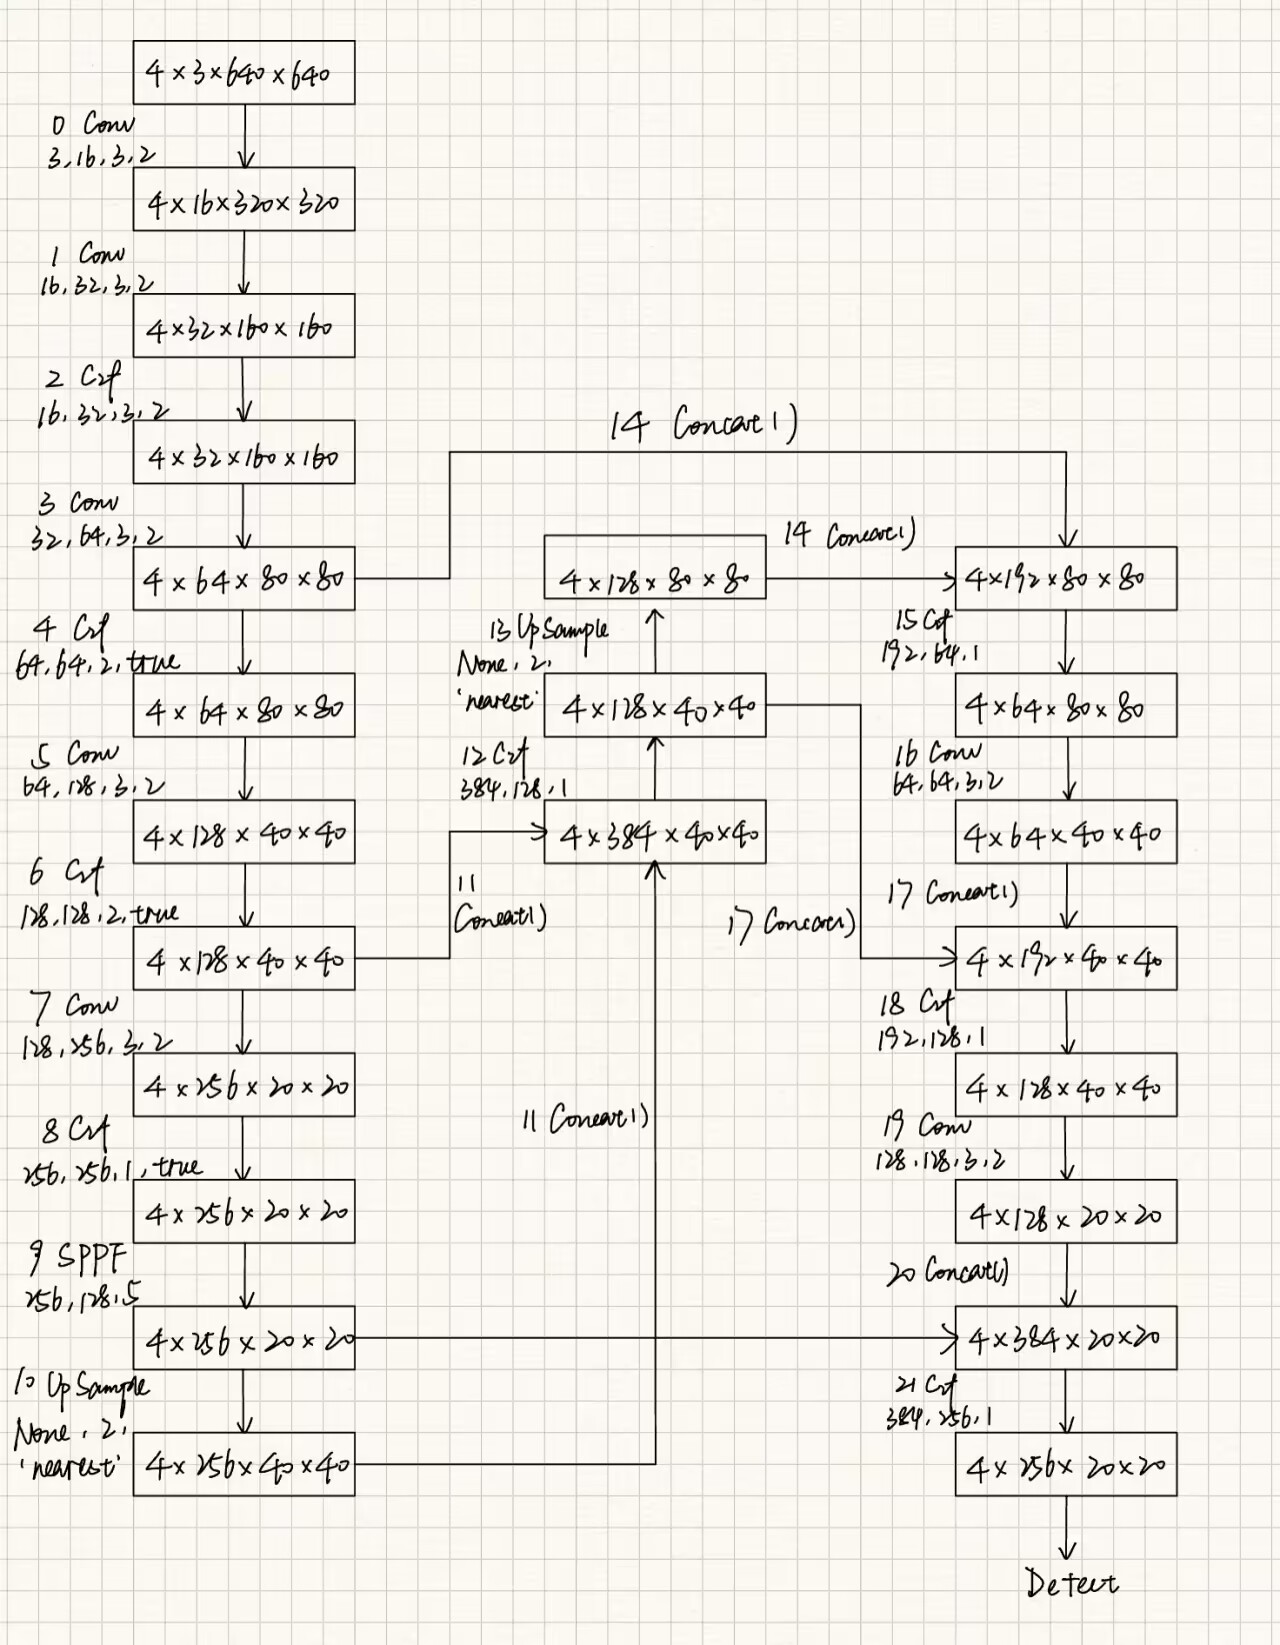 4×3×640×640
0 Conv
3,16,3,2
4×16×320×320
1 Conv
16,32,3,2
4×32×160×160
2 C2f
16,32,3,2
4×32×160×160
3 Conv
32,64,3,2
4×64×80×80
4 C2f
64,64,2,true
4×64×80×80
5 Conv
64,128,3,2
4×128×40×40
6 C2f
128,128,2,true
4×128×40×40
7 Conv
128,256,3,2
4×256×20×20
8 C2f
256,256,1,true
4×256×20×20
9 SPPF
256,128,5
4×256×20×20
10 UpSample
None,2,
'nearest'
4×256×40×40
14 Concat1)
14 Concat1)
4×128×80×80
13 UpSample
None,2,
'nearest'
4×128×40×40
12 C2f
384,128,1
4×384×40×40
11
Concat1)
17 Concat1)
11 Concat1)
4×192×80×80
15 C2f
192,64,1
4×64×80×80
16 Conv
64,64,3,2
4×64×40×40
17 Concat1)
4×192×40×40
18 C2f
192,128,1
4×128×40×40
19 Conv
128,128,3,2
4×128×20×20
20 Concat1)
4×384×20×20
21 C2f
384,256,1
4×256×20×20
Detect